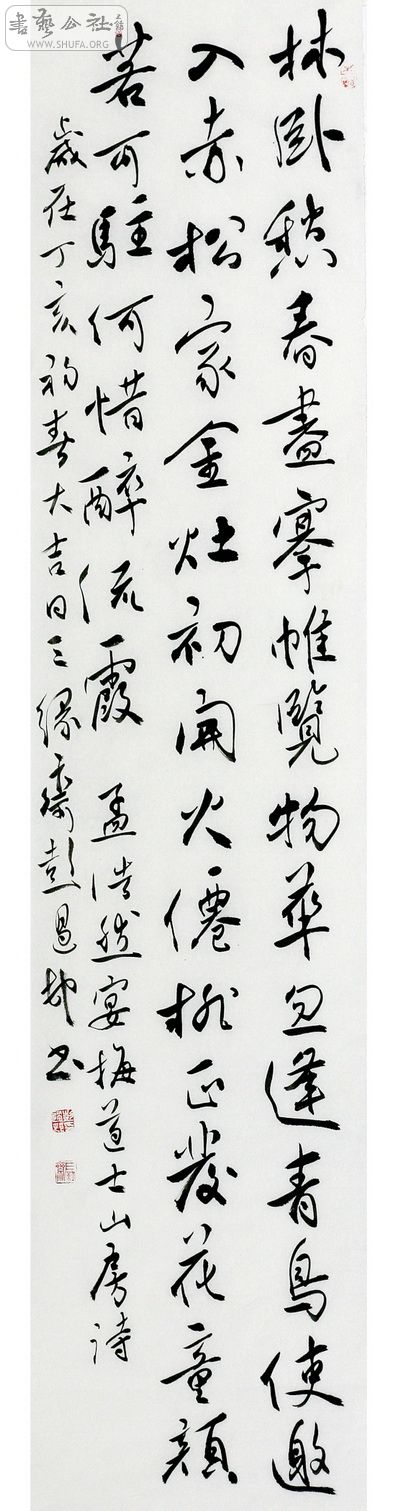 林卧愁春盡搴帷覽物華忽逢青鳥使邀
入赤松家金灶初開火僊桃正發花童顏
若可駐何惜醉流霞 孟浩然宴梅道士山房詩
歲在丁亥初春大吉日三緣齋彭書
書藝公社
WWW.SHUFA.ORG